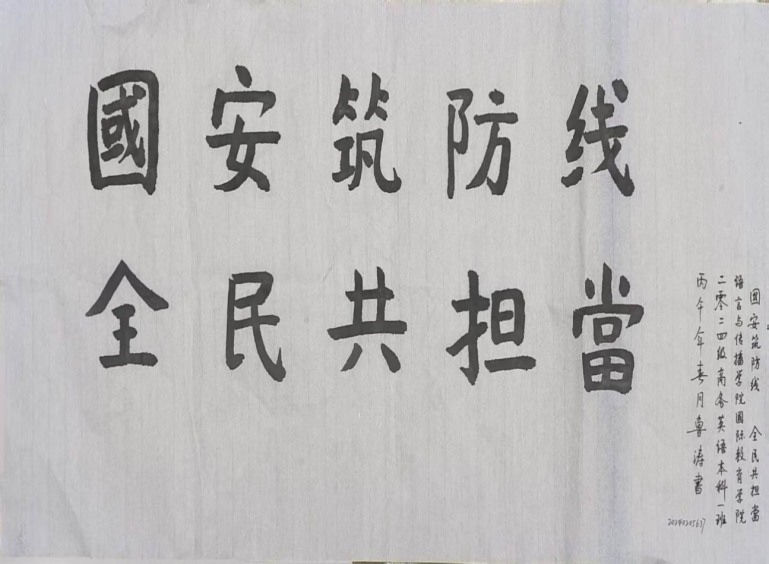 國安筑防线
全民共担當
國安筑防线 全民共担當
语言与传播学院国际教育学院
二零二四级商务英语本科一班
丙午年春月鲁涛書